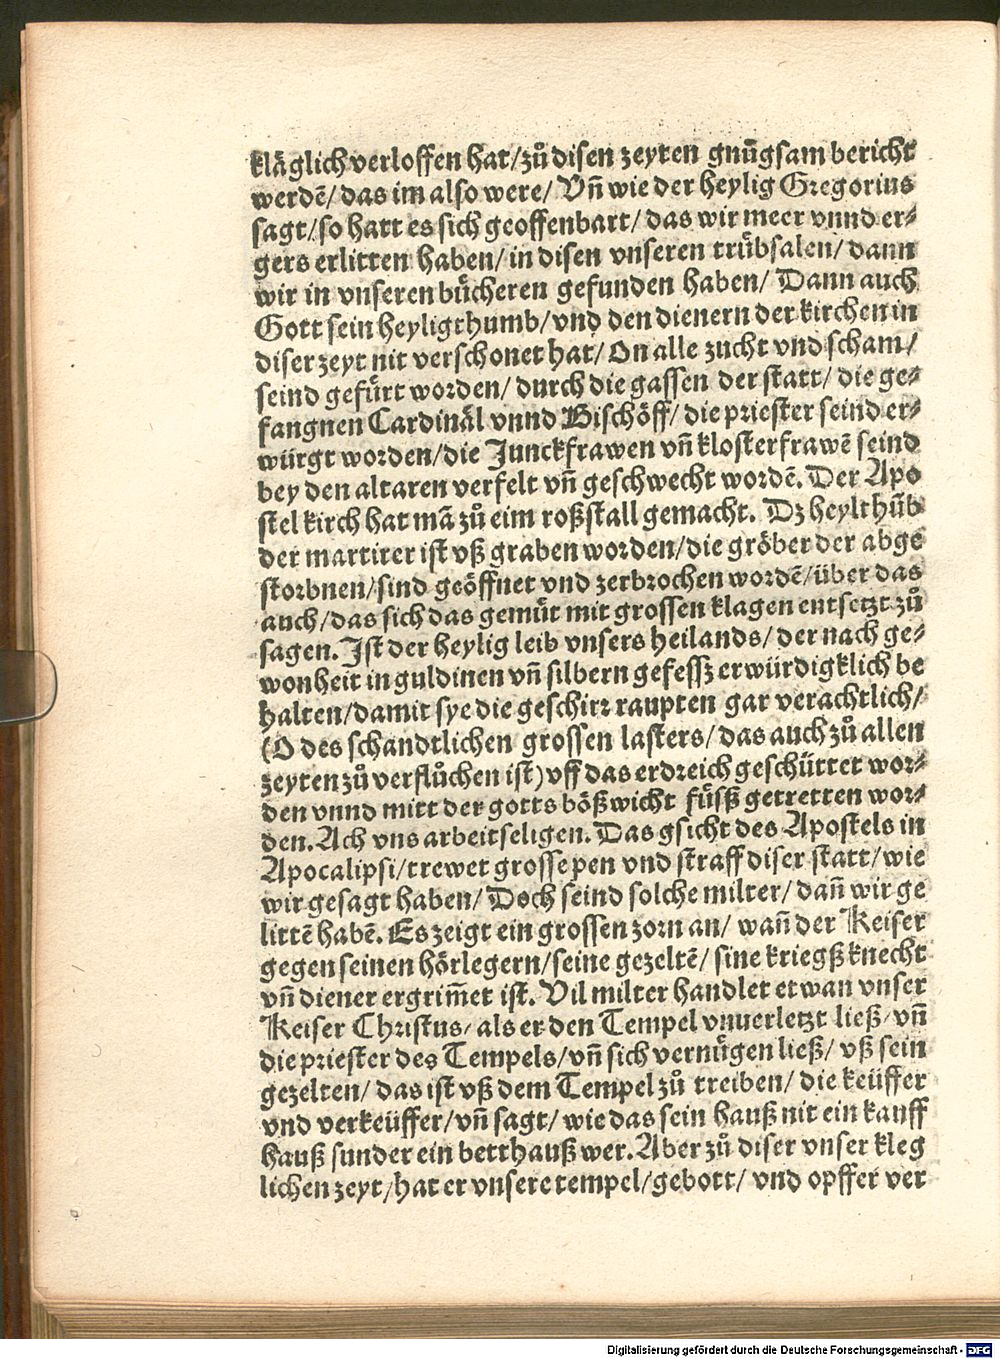 kläglich verloffen hat/zů disen zeyten gnůgsam bericht
werdē/das im also were/ Vñ wie der heylig Gregorius
sagt/so hatt es sich geoffenbart/ das wir meer vnnd er⸗
gers erlitten haben/in disen vnseren trübsalen/ dann
wir in vnseren bücheren gefunden haben/ Dann auch
Gott sein heyligthumb/vnd den dienern der kirchen in
diser zeyt nit verschonet hat/ On alle zucht vnd scham/
seind gefürt worden/ durch die gassen der statt/ die ge⸗
fangnen Cardinäl vnnd Bischöff/ die priester seind er⸗
würgt worden/die Junckfrawen vñ klosterfrawē seind
bey den altaren verfelt vñ geschwecht wordē. Der Apo
stel kirch hat mā zů eim roßstall gemacht. Dz heylthūb
der martirer ist vß graben worden/die gröber der abge
storbnen/sind geöffnet vnd zerbrochen wordē/über das
auch/das sich das gemüt mit grossen klagen entsetzt zů
sagen. Ist der heylig leib vnsers heilands/ der nach ge⸗
wonheit in guldinen vñ silbern gefessz erwürdigklich be
halten/damit sye die geschirr raupten gar verachtlich/
(O des schandtlichen grossen lasters/ das auch zů allen
zeyten zů verflůchen ist) vff das erdreich geschüttet wor⸗
den vnnd mitt der gotts bößwicht füsß getretten wor⸗
den. Ach vns arbeitseligen. Das gsicht des Apostels in
Apocalipsi/trewet grosse pen vnd straff diser statt/ wie
wir gesagt haben/ Doch seind solche milter/ dañ wir ge
littē habē. Es zeigt ein grossen zorn an/ wañ der Keiser
gegen seinen hörlegern/seine gezeltē/ sine kriegß knecht
vñ diener ergrim̄et ist. Vil milter handlet etwan vnser
Keiser Christus/ als er den Tempel vnuerletzt ließ/ vñ
die priester des Tempels/vñ sich vernügen ließ/ vß sein
gezelten/ das ist vß dem Tempel zů treiben/ die keüffer
vnd verkeüffer/vñ sagt/ wie das sein hauß nit ein kauff
hauß sunder ein betthauß wer. Aber zů diser vnser kleg
lichen zeyt/hat er vnsere tempel/gebott/ vnd opffer ver
Digitalisierung gefördert durch die Deutsche Forschungsgemeinschaft - DFG